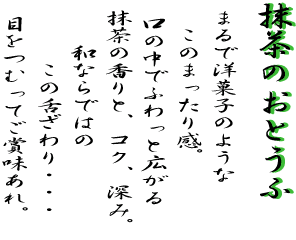 抹茶のおとうふ
まるで洋菓子のような
このまったり感。
口の中でふわっと広がる
抹茶の香りと、コク、深み。
和ならではの
この舌ざわり・・・
目をつむってご賞味あれ。